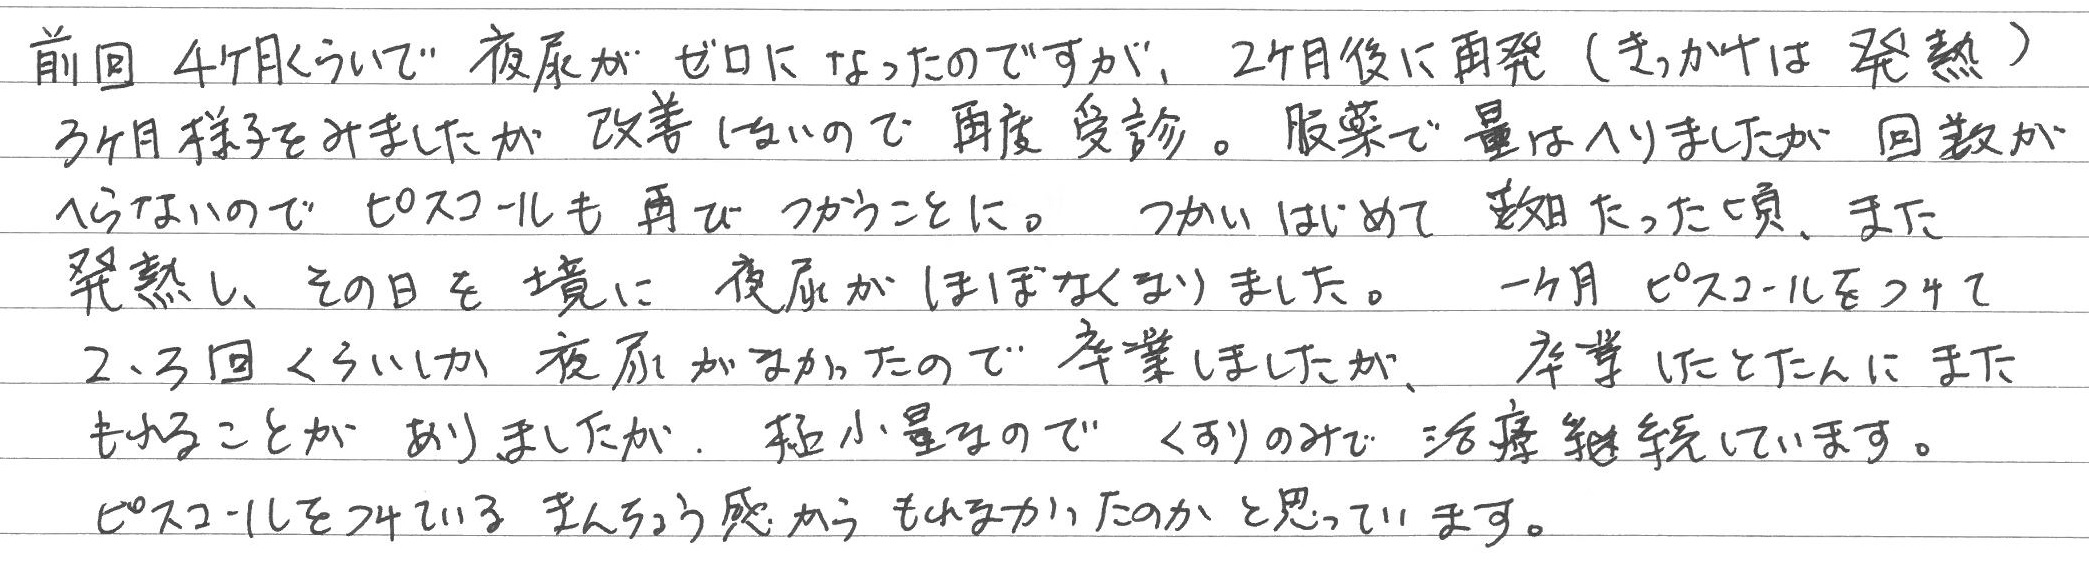 前回 4ヶ月くらいで 夜尿が ゼロに なったのですが、 2ケ月後に再発 (きっかけは 発熱)
3ケ月様子をみましたが 改善しないので 再度 受診。 服薬で 量はへりましたが 回数が
へらないので ピスコールも 再び つかうことに。 つかいはじめて 数日たった頃、また
発熱し、その日を境に 夜尿が ほぼなくなりました。 一ケ月 ピスコールをつけて
2、3回くらいしか 夜尿がなかったので 卒業しましたが、 卒業したとたんに また
もれることが ありましたが、極小量なので くすりのみで 治療継続しています。
ピスコールをつけている きんちょう感から もれなかったのかと思っています。